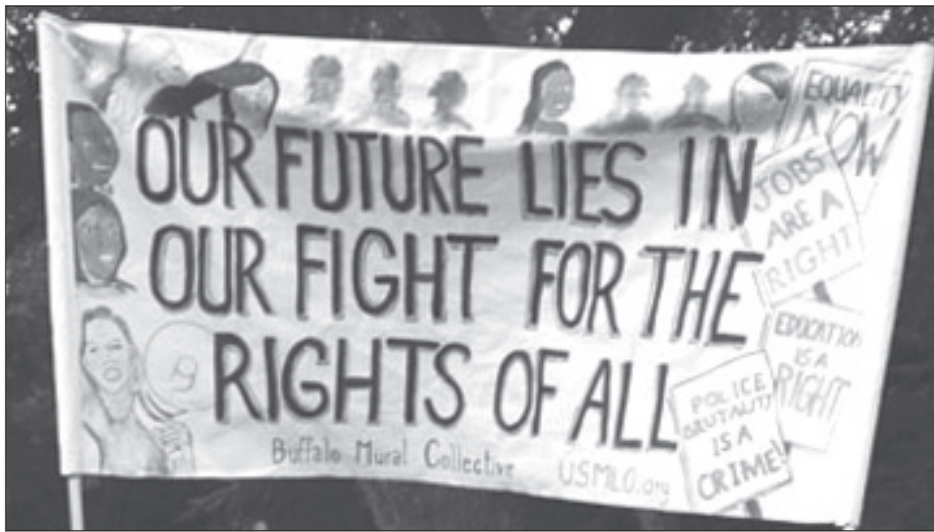 OUR FUTURE LIES IN
OUR FIGHT FOR THE
RIGHTS OF ALL
Buffalo Mural Collective USMLO.org
EQUALITY
NOW
JOBS
ARE A
RIGHT
EDUCATION
IS A
RIGHT
POLICE
BRUTALITY
IS A
CRIME!